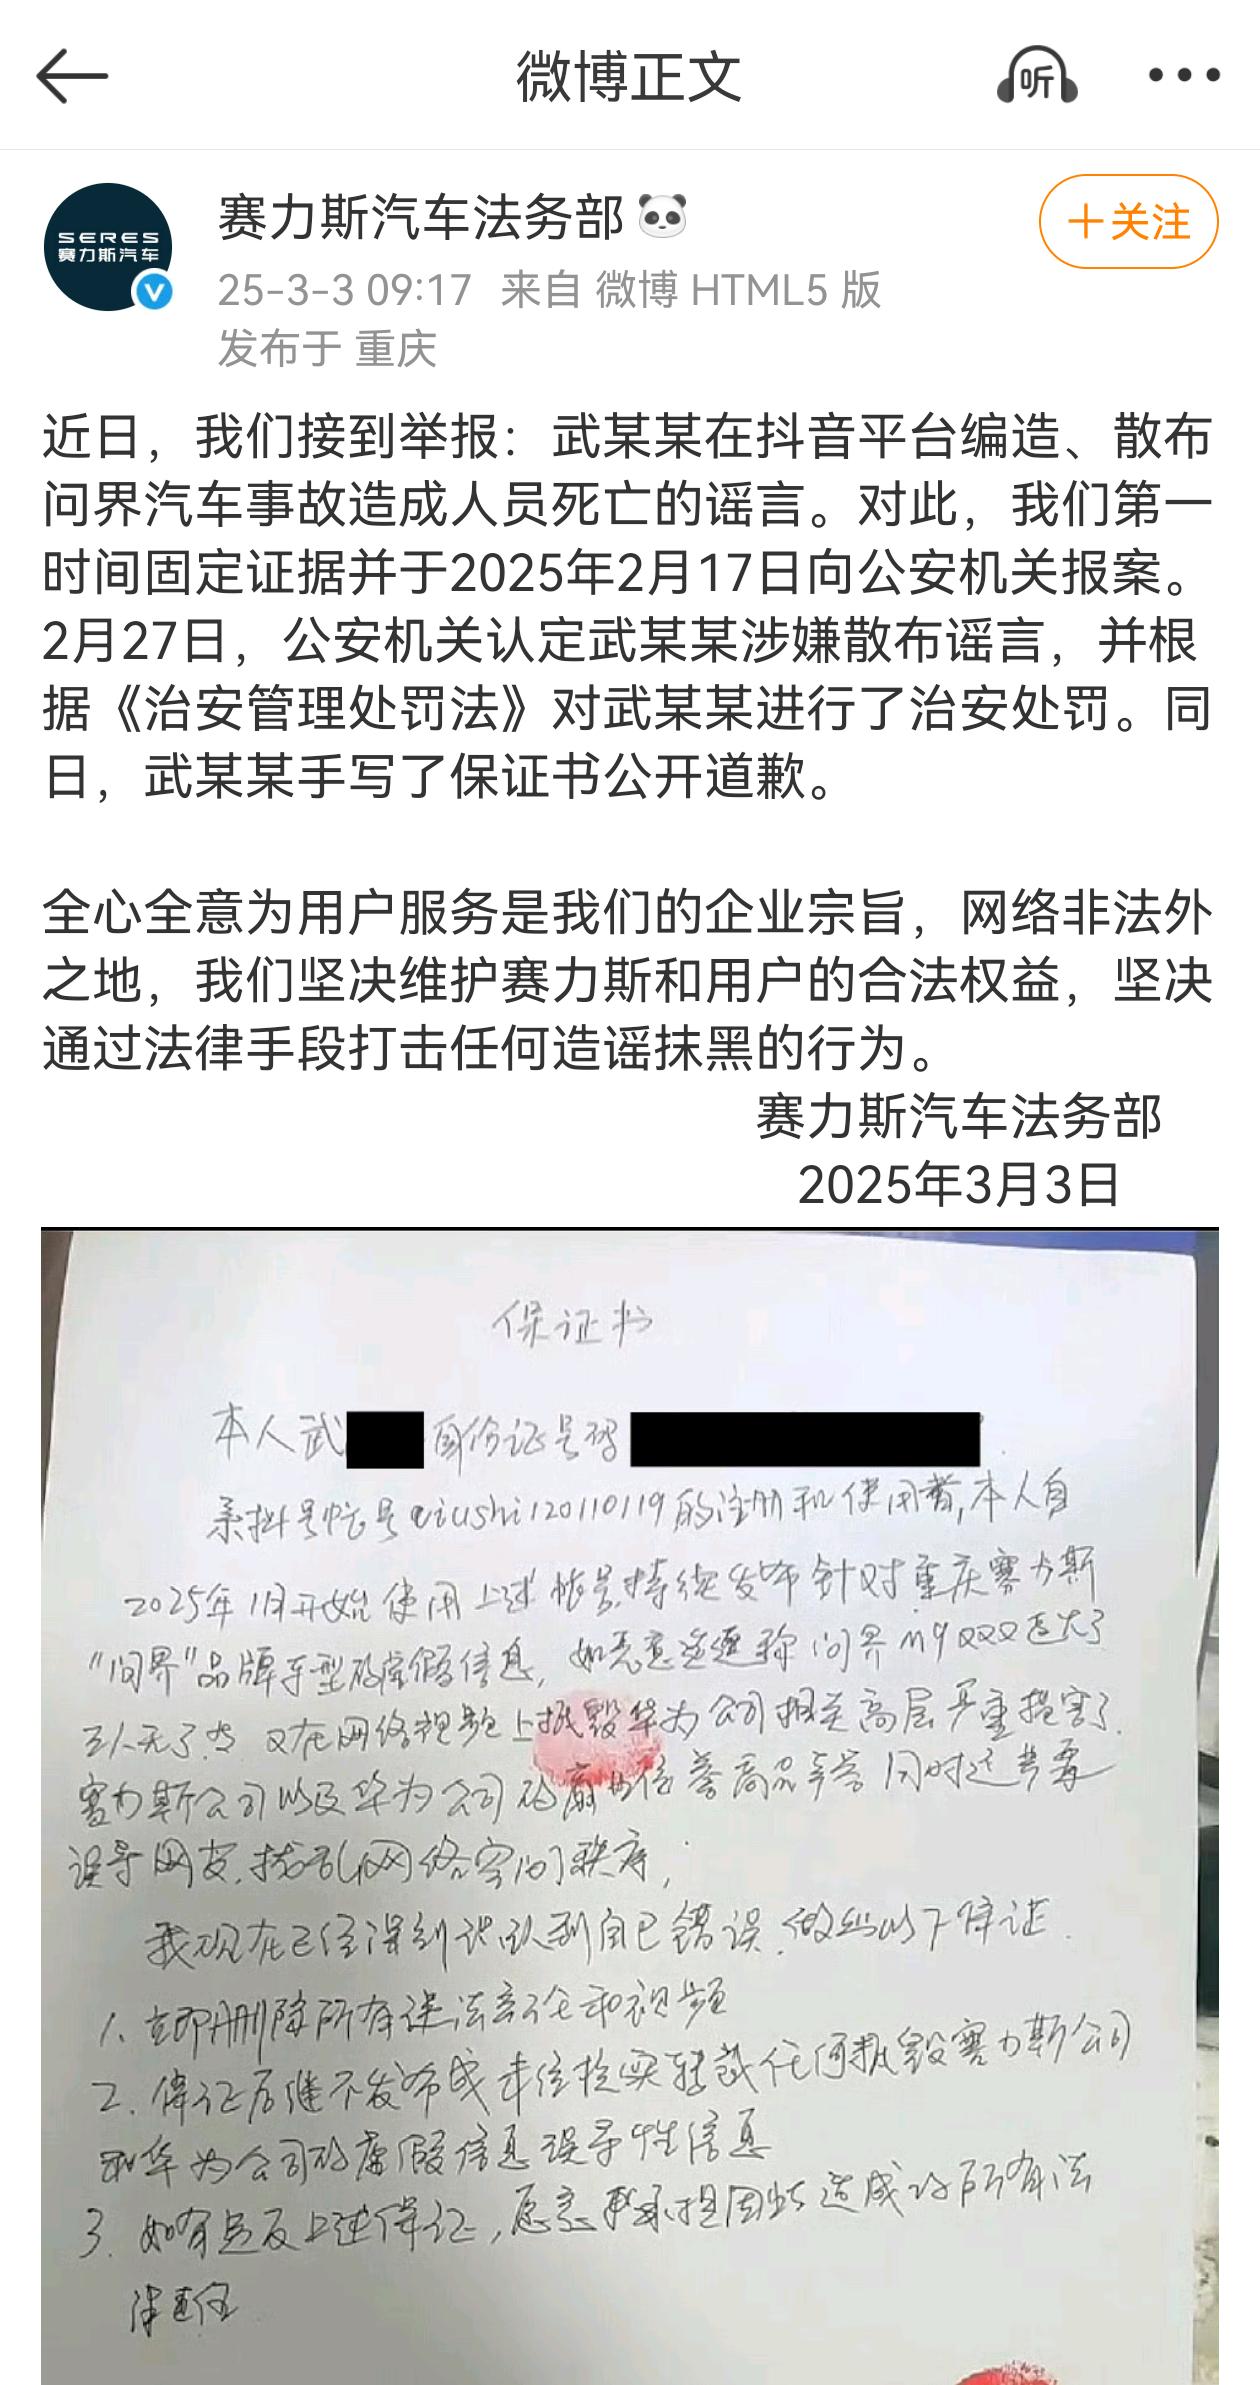 微博正文
听
SERES
赛力斯汽车
赛力斯汽车法务部
+关注
25-3-3 09:17 来自 微博 HTML5 版
发布于 重庆
近日，我们接到举报：武某某在抖音平台编造、散布
问界汽车事故造成人员死亡的谣言。对此，我们第一
时间固定证据并于2025年2月17日向公安机关报案。
2月27日，公安机关认定武某某涉嫌散布谣言，并根
据《治安管理处罚法》对武某某进行了治安处罚。同
日，武某某手写了保证书公开道歉。
全心全意为用户服务是我们的企业宗旨，网络非法外
之地，我们坚决维护赛力斯和用户的合法权益，坚决
通过法律手段打击任何造谣抹黑的行为。
赛力斯汽车法务部
2025年3月3日
保证书
本人武 身份证号码
系抖号帐号 的注册和使用者,本人自
2025年1月开始使用上述帐号,持续发布针对重庆赛力斯
"问界"品牌车型的虚假信息, 如恶意造谣称问界m9 又
三人无了. 又在网络视频上抵毁华为公司相关高层严重损害了
赛力斯公司以及华为公司的商业信誉商品声誉 同时还
误导网友.扰乱网络空间秩序,
我现在已经深刻认识到自己错误.做出以下保证.
1、立即删除所有违法言论和视频
2. 保证后续不发布或未经核实转载任何抵毁赛力斯公司
和华为公司的虚假信息误导性信息
3. 如有违反上述保证,愿意承担因此造成的所有法
律责任